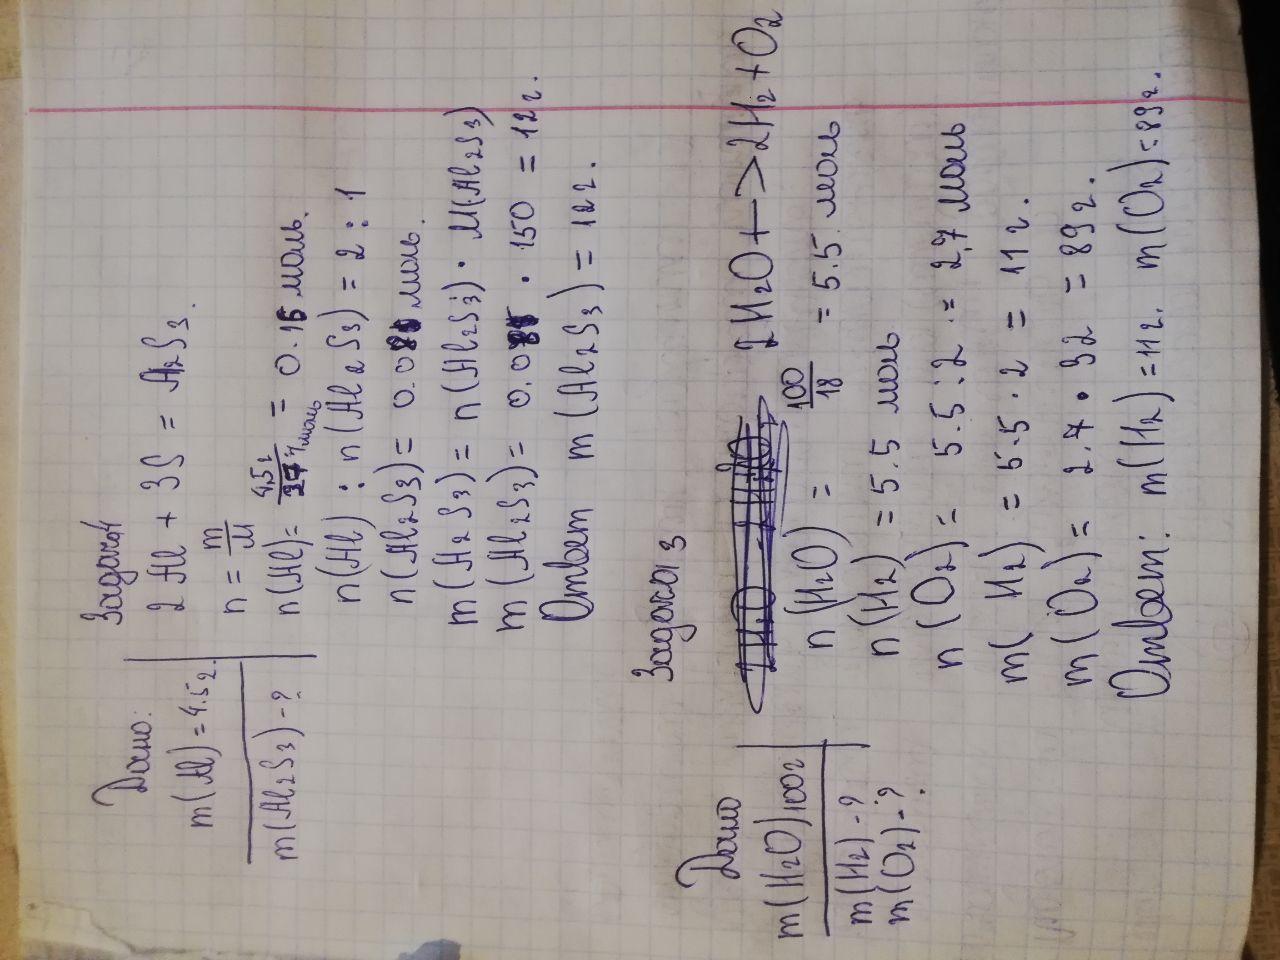 Задача 4
Дано:
m(Al) = 4.5г.
m(Al2S3) - ?
2Al + 3S = Al2S3.
n = m/M
n(Al) = 4,5г/27г/моль = 0.16 моль.
n(Al) : n(Al2S3) = 2 : 1
n(Al2S3) = 0.08 моль.
m(Al2S3) = n(Al2S3) · M(Al2S3)
m(Al2S3) = 0.08 · 150 = 12г.
Ответ m(Al2S3) = 12г.
Задача 3
Дано
m(H2O) 100г
m(H2) - ?
m(O2) - ?
2H2O +-> 2H2 + O2
n(H2O) = 100/18 = 5.5 моль
n(H2) = 5.5 моль
n(O2) = 5.5 : 2 = 2,7 моль
m(H2) = 5.5 · 2 = 11г.
m(O2) = 2.7 · 32 = 89г.
Ответ: m(H2) = 11г. m(O2) = 89г.